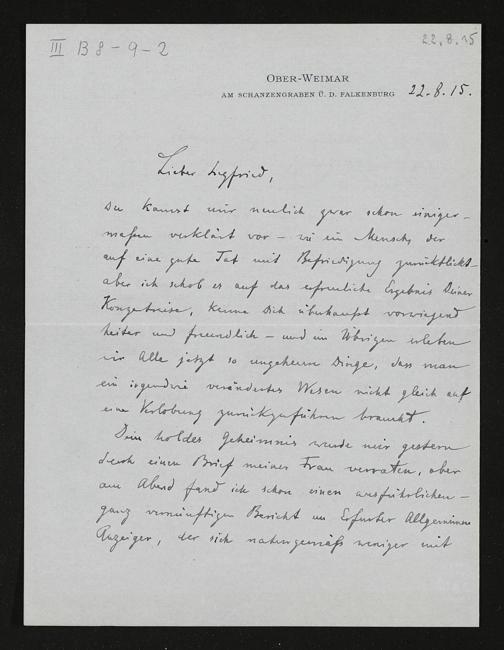 III B 8 - 9 - 2
22.8.15
OBER-WEIMAR
AM SCHANZENGRABEN Ü. D. FALKENBURG
22.8.15.
Lieber Siegfried,
Du kamst mir neulich zwar schon einiger-
maßen verklärt vor – wie ein Mensch, der
auf eine gute Tat mit Befriedigung zurückblickt –
aber ich schob es auf das erfreuliche Ergebnis Deiner
Konzertreise, kenne Dich überhaupt vorwiegend
heiter und freundlich – und im Übrigen erleben
wir Alle jetzt so ungeheure Dinge, dass man
ein irgendwie verändertes Wesen nicht gleich auf
eine Verlobung zurückzuführen braucht.
Dein holdes Geheimnis wurde mir gestern
durch einen Brief meiner Frau verraten, aber
am Abend fand ich schon einen ausführlichen –
ganz vernünftigen Bericht im Erfurter Allgemeinen
Anzeiger, der sich naturgemäß weniger mit